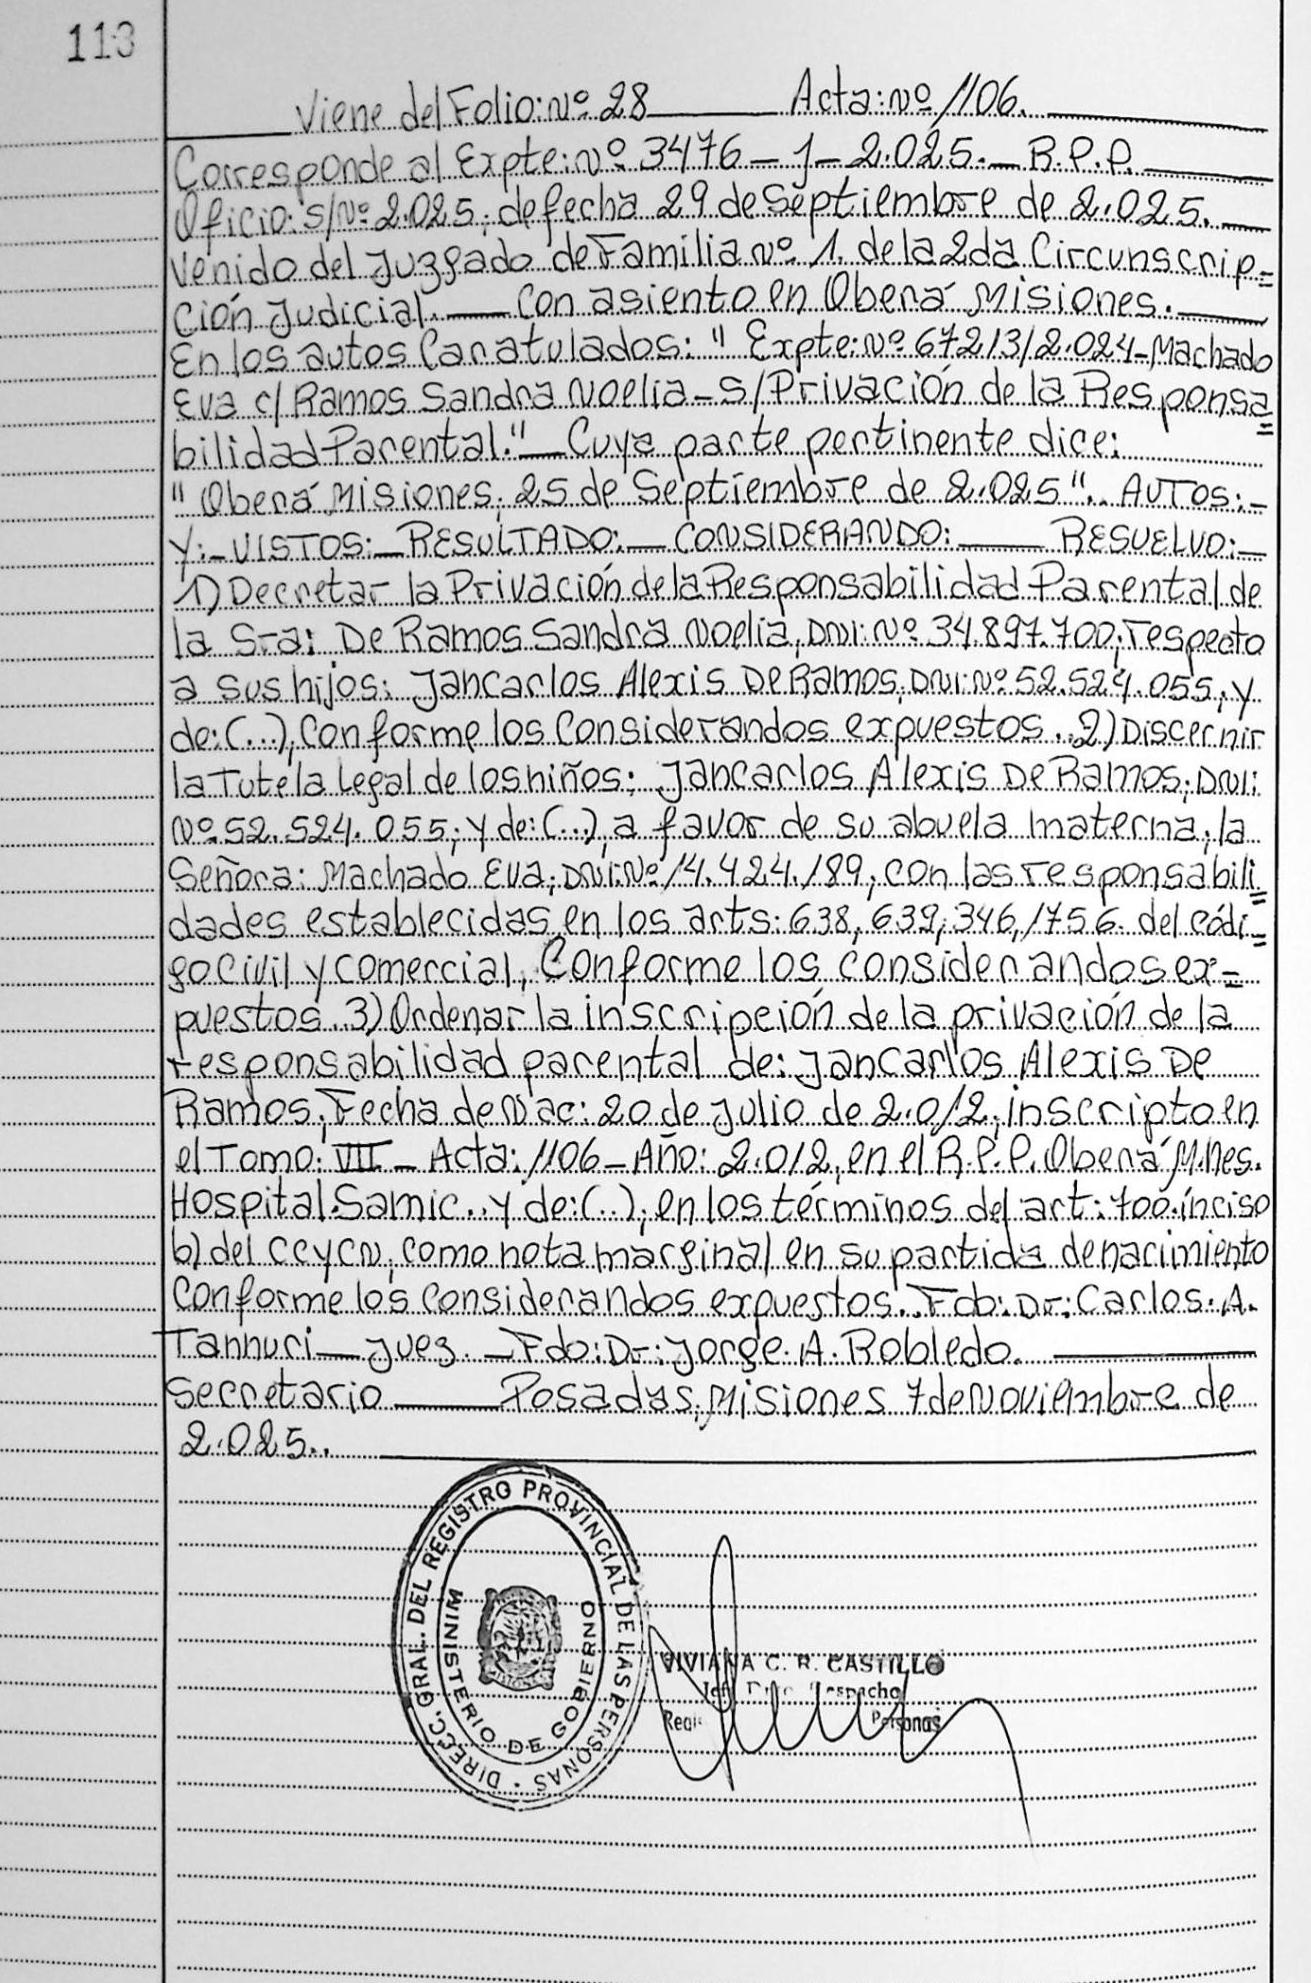 113
Viene del Folio: Nº 28 Acta: Nº 1106.
Corresponde al Expte: Nº 3476 – J – 2.025. – R.P.P.
Oficio: S/Nº 2.025, de fecha 29 de Septiembre de 2.025.
Venido del Juzgado de Familia Nº 1. de la 2da Circunscrip=
ción Judicial. — Con asiento en Oberá Misiones.
En los autos Caratulados: " Expte: Nº 67213/2.024 – Machado
Eva c/ Ramos Sandra Noelia – S/ Privación de la Responsa=
bilidad Parental." — Cuya parte pertinente dice:
"Oberá Misiones, 25 de Septiembre de 2.025". AUTOS: –
Y: – VISTOS: – RESULTADO: – CONSIDERANDO: — RESUELVO: –
1) Decretar la Privación de la Responsabilidad Parental de
la Sra: De Ramos Sandra Noelia, DNI: Nº 34.897.700, respecto
a sus hijos: Jancarlos Alexis De Ramos, DNI: Nº 52.524.055, y
de: (...), Conforme los Considerandos expuestos.. 2) Discernir
la Tutela Legal de los niños: Jancarlos Alexis De Ramos, DNI:
Nº 52.524.055, y de: (..), a favor de su abuela materna, la
Señora: Machado Eva, DNI: Nº 14.424.189, con las responsabili=
dades establecidas en los arts: 638, 639, 346, 1756. del códi=
go Civil y comercial, Conforme los considerandos ex=
puestos.. 3) Ordenar la inscripción de la privación de la
responsabilidad parental de: Jancarlos Alexis De
Ramos, Fecha de Nac: 20 de Julio de 2.012, inscripto en
el Tomo: VII – Acta: 1106 – Año: 2.012, en el R.P.P. Oberá Mnes.
Hospital Samic.. y de: (..), en los términos del art: 700. inciso
b) del CCyCN, como nota marginal en su partida de nacimiento
Conforme los Considerandos expuestos. Fdo: Dr: Carlos. A.
Tannuri — Juez. – Fdo: Dr: Jorge. A. Robledo.
Secretario — Posadas, Misiones 7 de Noviembre de
2.025..
DIRECC. GRAL. DEL REGISTRO PROVINCIAL DE LAS PERSONAS
MINISTERIO DE GOBIERNO
MISIONES
VIVIANA C. R. CASTILLO
Despacho
Personas